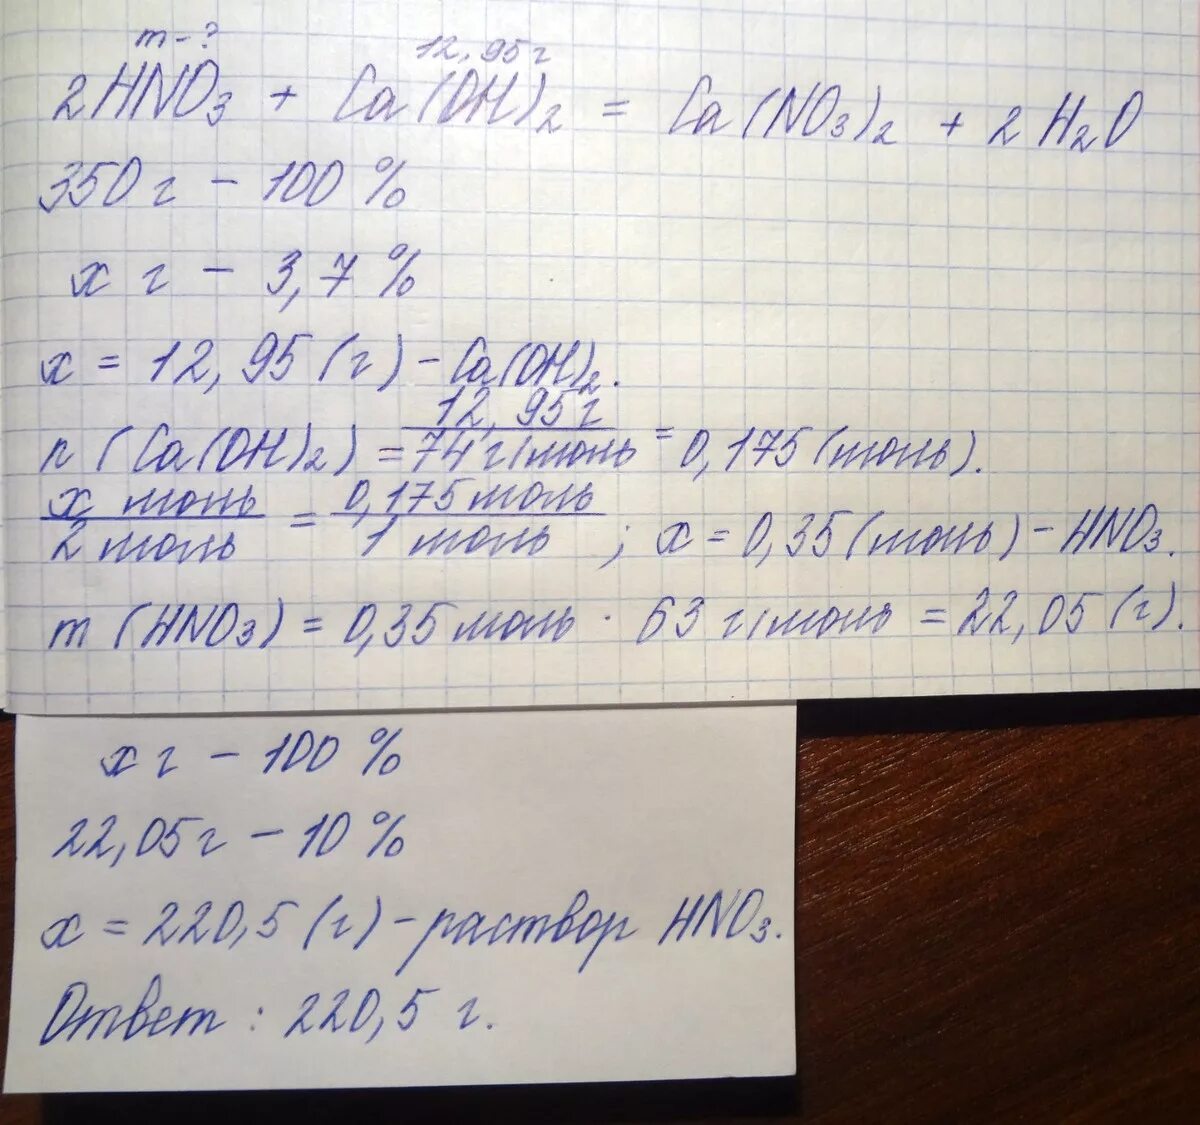 m - ?
12,95 г
2HNO₃ + Ca(OH)₂ = Ca(NO₃)₂ + 2H₂O
350 г - 100 %
x г - 3,7 %
x = 12,95 (г) - Ca(OH)₂.
n (Ca(OH)₂) = 12,95 г / 74 г/моль = 0,175 (моль).
x моль / 2 моль = 0,175 моль / 1 моль ; x = 0,35 (моль) - HNO₃.
m (HNO₃) = 0,35 моль · 63 г/моль = 22,05 (г).
x г - 100 %
22,05 г - 10 %
x = 220,5 (г) - раствор HNO₃.
Ответ : 220,5 г.